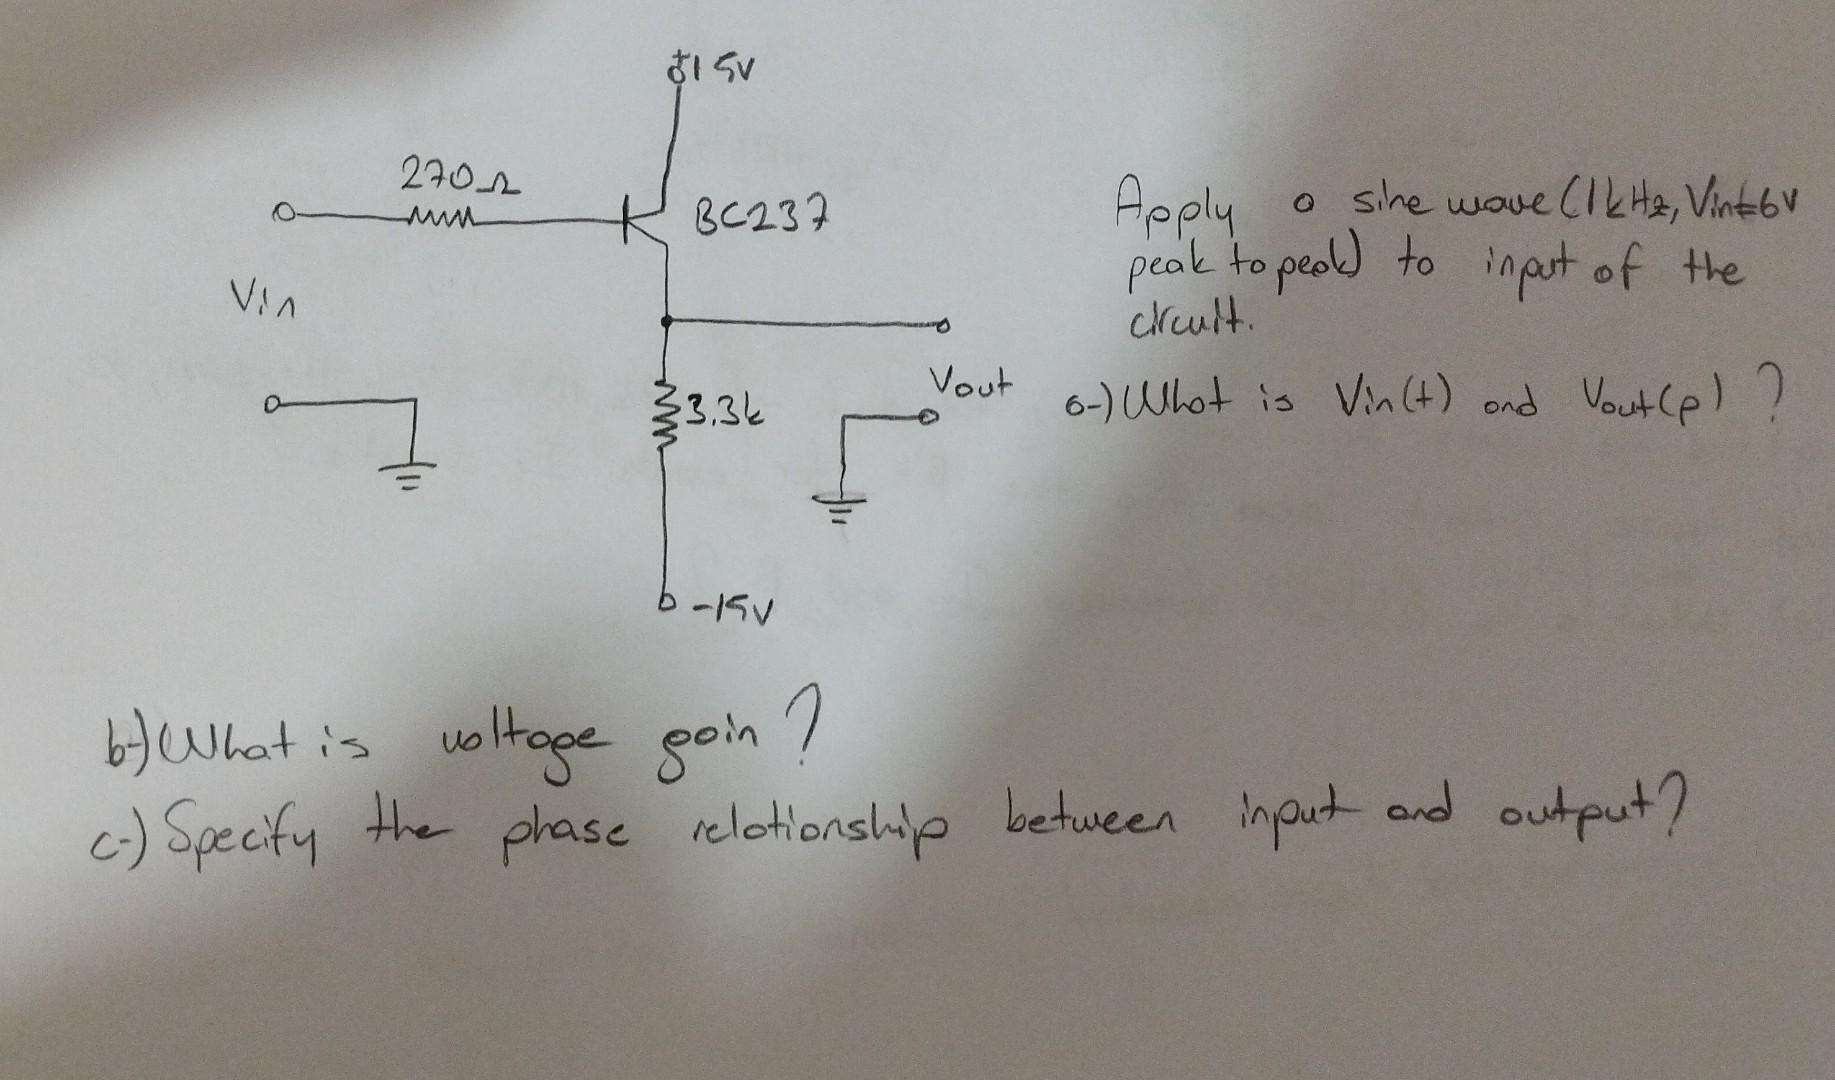 +15V
270Ω
BC237
Vin
Vout
3.3k
-15V
Apply a sine wave (1kHz, Vin=6V
peak to peak) to input of the
circuit.
a-) What is Vin(t) and Vout(p) ?
b-) What is voltage gain ?
c-) Specify the phase relationship between input and output?